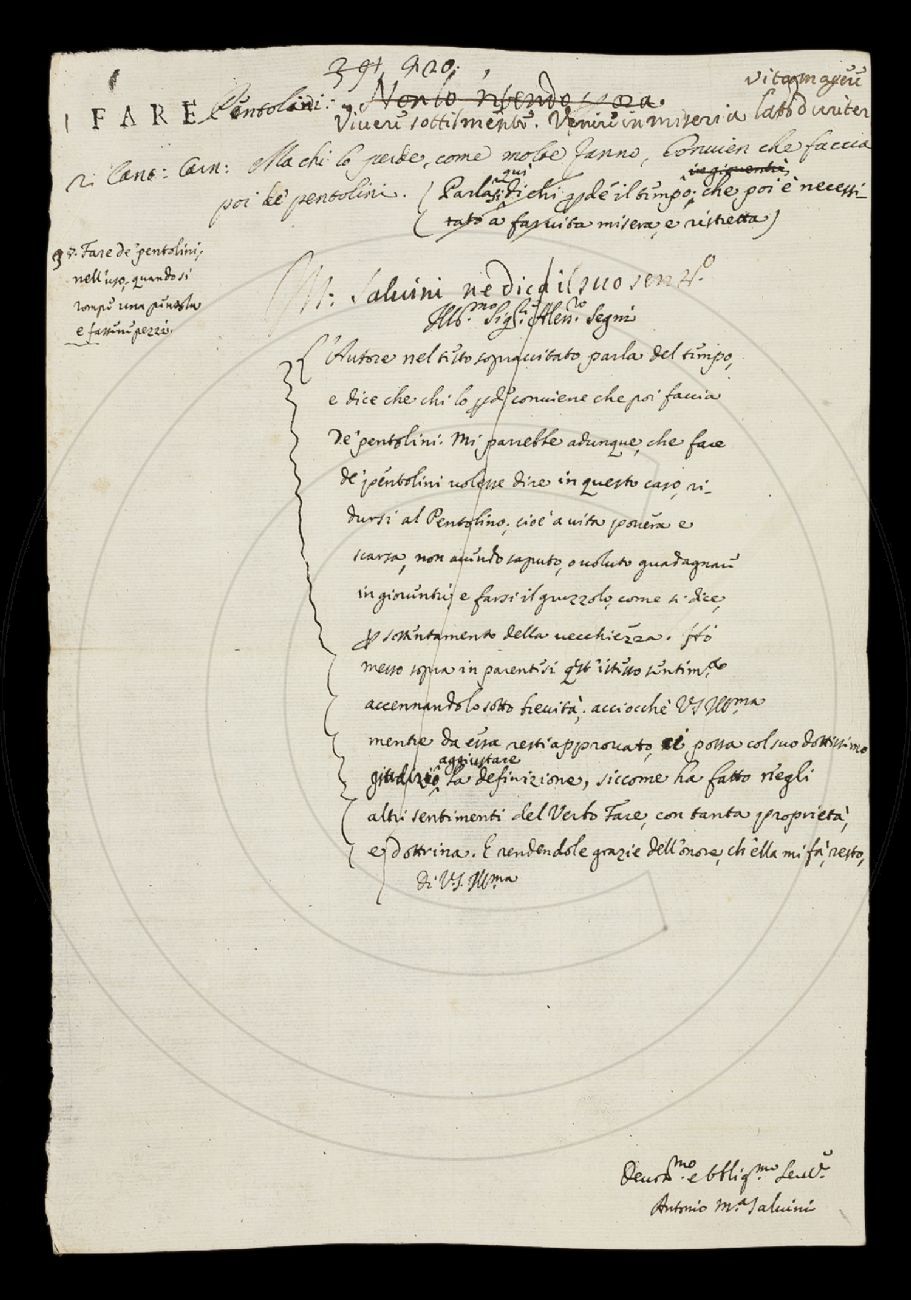 391 920.
FARE Pentolini. Non lo intendo ora. vita magra
Vivere sottilmente. Venire in miseria
ri Cant: Carn: Ma chi lo perde, come molte fanno, Convien che faccia
poi de pentolini. (Parlasi qui di chi pde il tempo in gioventù, che poi è necessi-
tato a far vita misera, e ristretta)
38. Fare de' pentolini,
nell'uso, quando si
rompe una pentola
e fassene pezzi.
Il S. Salvini ne dica il suo sent.o
Ill.mo Sig.r Aless.ro Segni
L'Autore nel testo sopraccitato parla del tempo,
e dice che chi lo pde conviene che poi faccia
de' pentolini. Mi parrebbe adunque, che fare
de' pentolini volesse dire in questo caso, ri-
dursi al Pentolino, cioè a vita povera e
scarsa, non avendo saputo, o voluto guadagnare
in gioventù, e farsi il gruzzolo, come si dice,
p sostentamento della vecchiezza. Hò
messo sopra in parentesi qsto istesso sentim.to
accennandolo sotto brevità, acciocchè VS Ill.ma
mentre da essa resti approvato, ci possa col suo dottissimo
giudizio aggiustare la definizione, siccome ha fatto negli
altri sentimenti del Verbo Fare, con tanta proprietà,
e dottrina. E rendendole grazie dell'onore, ch'ella mi fà, resto,
di V.S. Ill.ma
Devot.mo e Obblig.mo Serv.e
Antonio M.a Salvini